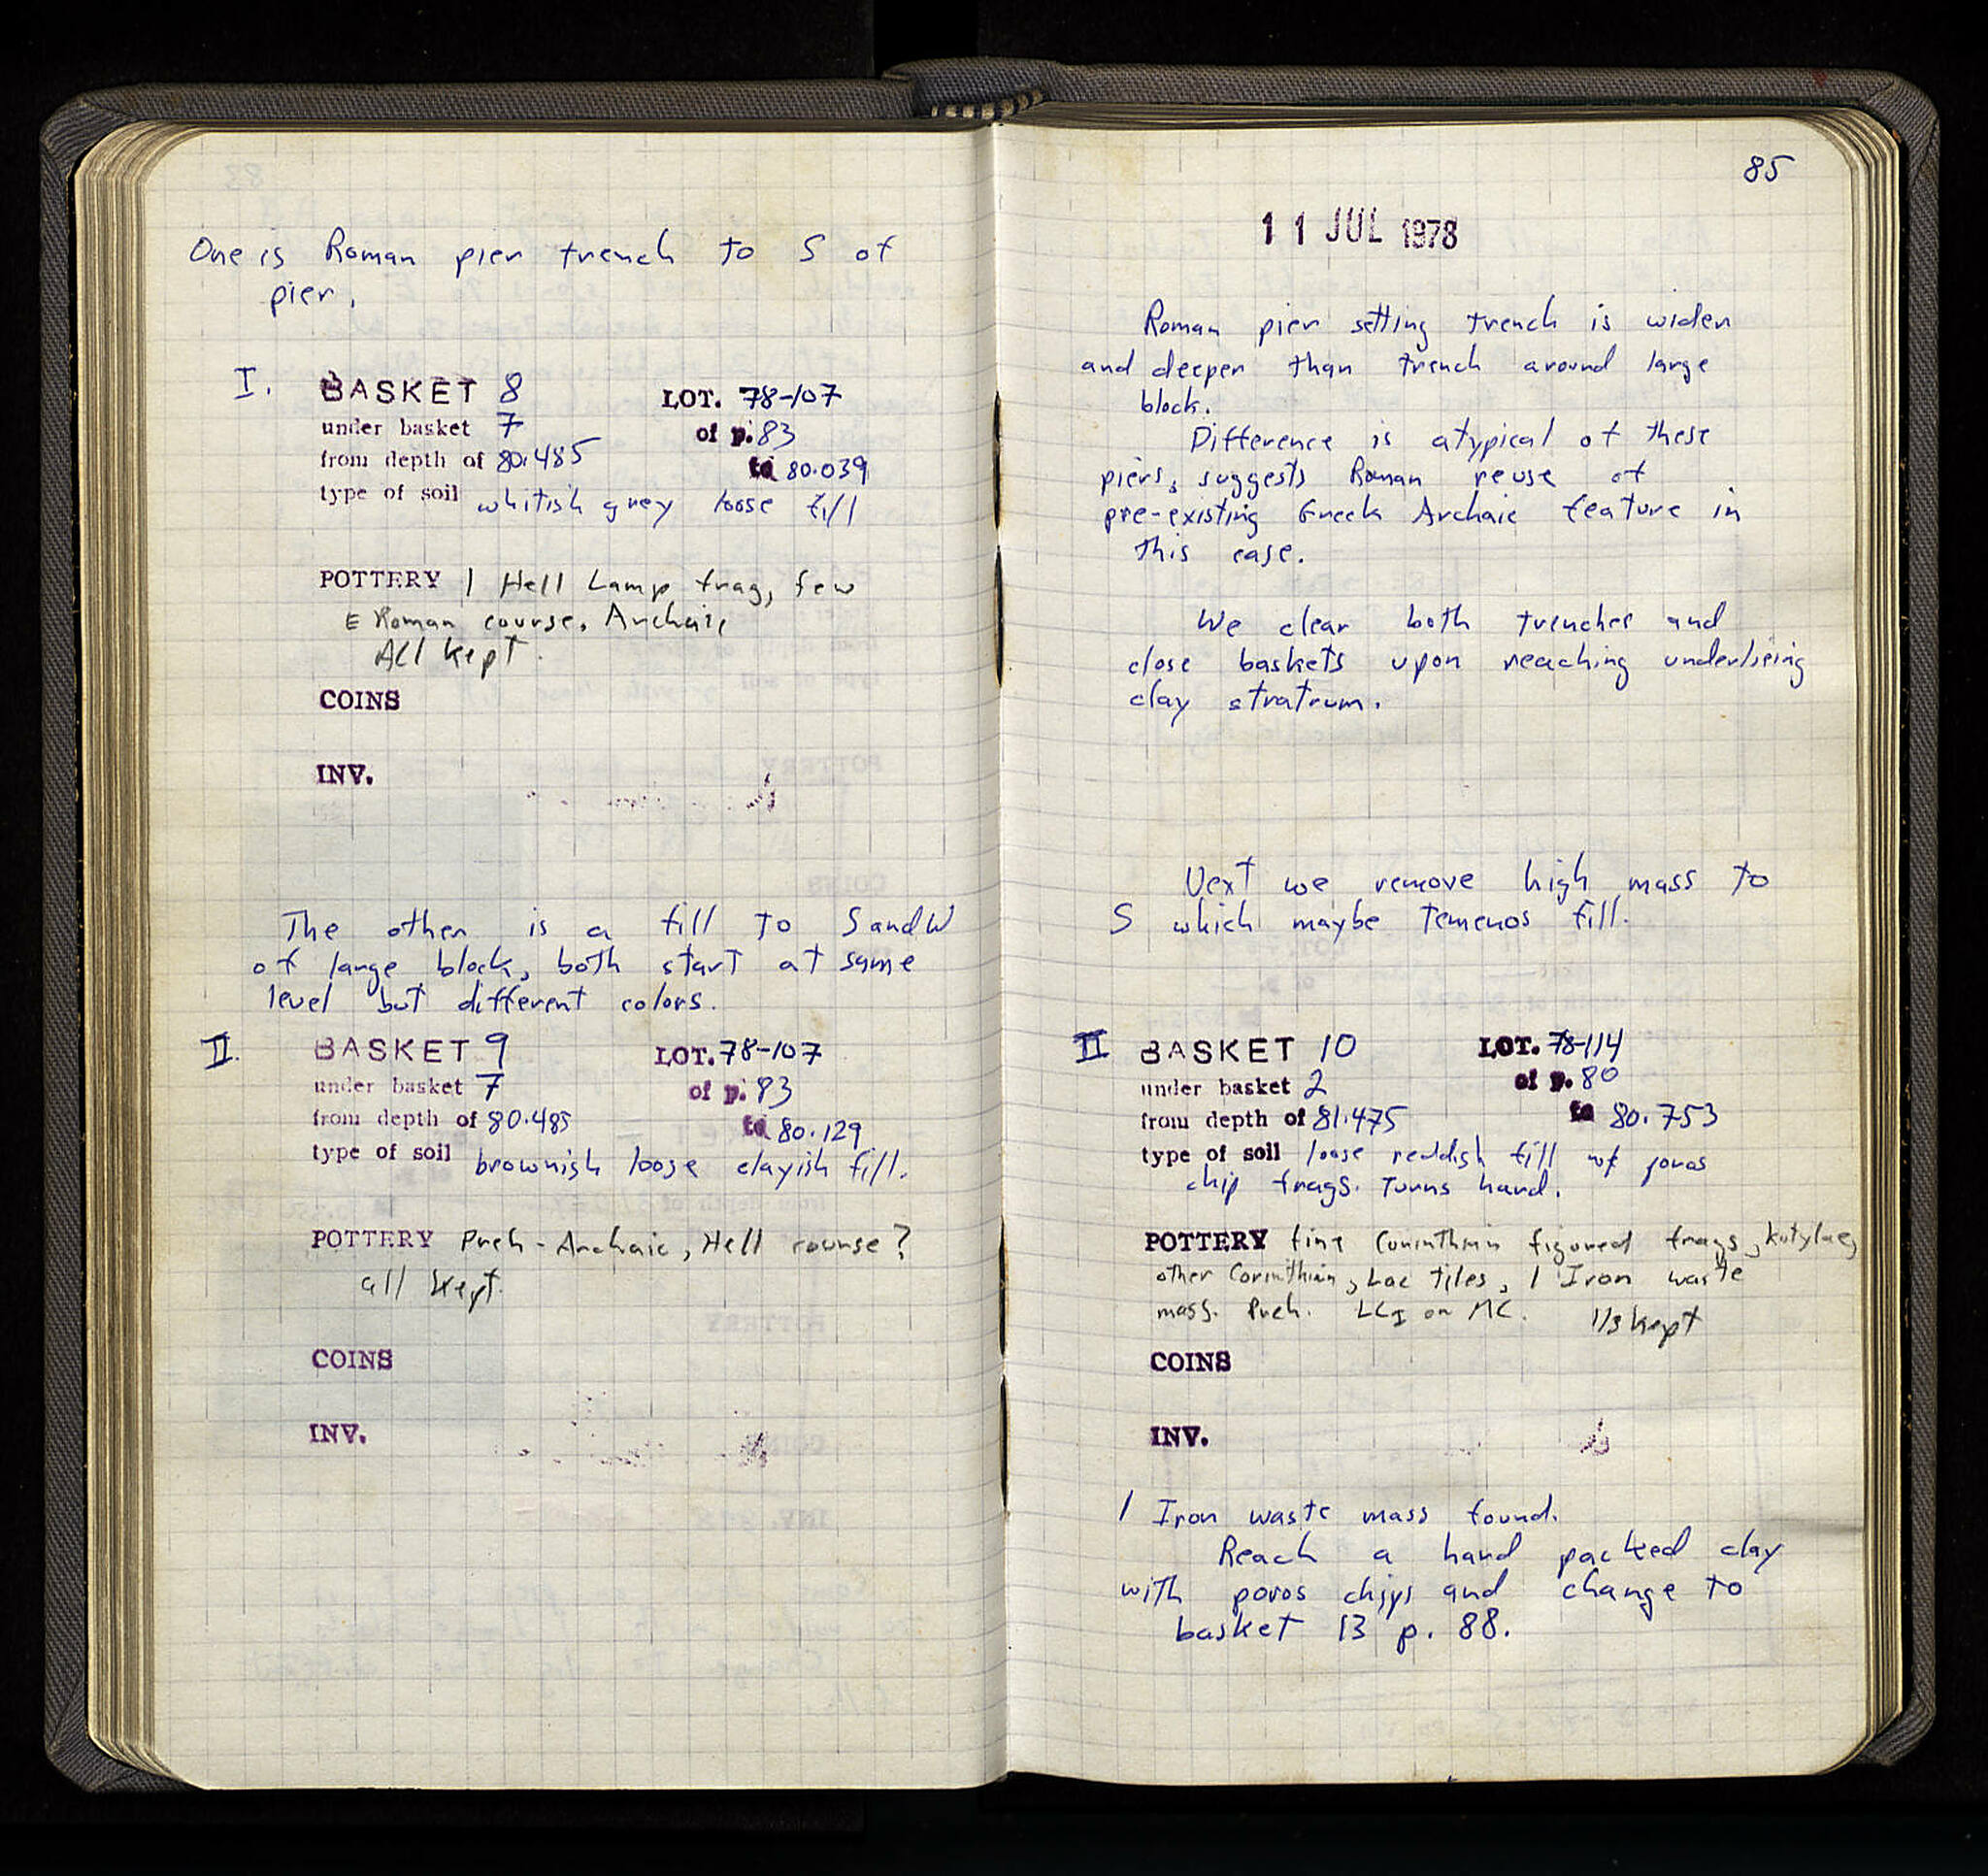 One is Roman pier trench to S of
pier.
I. BASKET 8 LOT. 78-107
under basket 7 of p. 83
from depth of 80.485 to 80.039
type of soil whitish grey loose fill
POTTERY 1 Hell Lamp frag, few
E Roman course, Archaic
All kept.
COINS
INV.
The other is a fill to S and W
of large block, both start at same
level but different colors.
II. BASKET 9 LOT. 78-107
under basket 7 of p. 83
from depth of 80.485 to 80.129
type of soil brownish loose clayish fill.
POTTERY Preh-Archaic, Hell course?
all kept.
COINS
INV.
85
11 JUL 1978
Roman pier setting trench is wider
and deeper than trench around large
block.
Difference is atypical of these
piers, suggests Roman reuse of
pre-existing Greek Archaic feature in
this case.
We clear both trenches and
close baskets upon reaching underlieing
clay stratrum.
Next we remove high mass to
S which maybe Temenos fill.
II BASKET 10 LOT. 78-114
under basket 2 of p. 80
from depth of 81.475 to 80.753
type of soil loose reddish fill w/ poros
chip frags. Turns hard.
POTTERY fine Corinthian figured frags, kotylae,
other Corinthian, Lac tiles, 1 Iron waste
mass. Preh. LCI or MC. 1/3 kept
COINS
INV.
1 Iron waste mass found.
Reach a hard packed clay
with poros chips and change to
basket 13 p. 88.